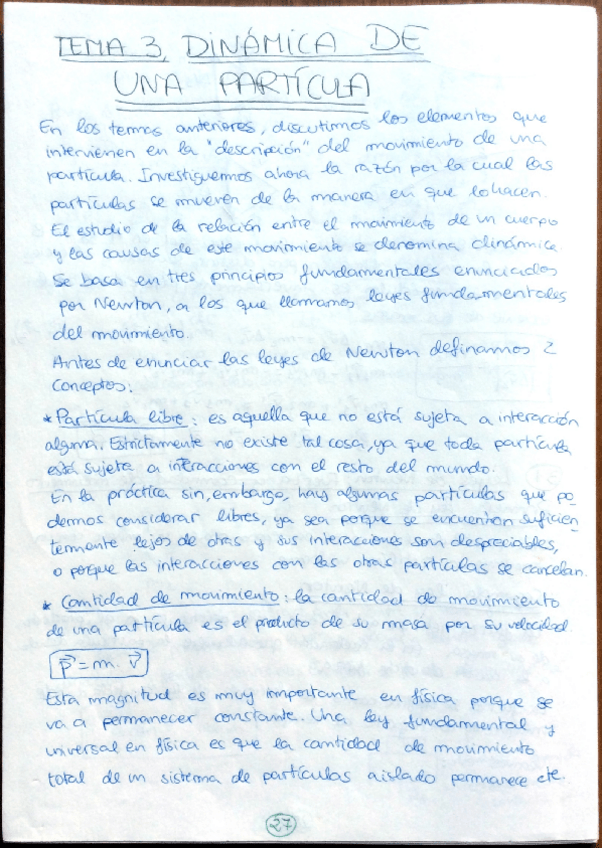 TEMA 3. DINÁMICA DE
UNA PARTÍCULA
En los temas anteriores, discutimos los elementos que
intervienen en la "descripción" del movimiento de una
partícula. Investiguemos ahora la razón por la cual las
partículas se mueven de la manera en que lo hacen.
El estudio de la relación entre el movimiento de un cuerpo
y las causas de este movimiento se denomina dinámica.
Se basa en tres principios fundamentales enunciados
por Newton, a los que llamamos leyes fundamentales
del movimiento.
Antes de enunciar las leyes de Newton definamos 2
conceptos:
* Partícula libre: es aquella que no está sujeta a interacción
alguna. Estrictamente no existe tal cosa, ya que toda partícula
está sujeta a interacciones con el resto del mundo.
En la práctica sin, embargo, hay algunas partículas que po-
demos considerar libres, ya sea porque se encuentran suficien-
temente lejos de otras y sus interacciones son despreciables,
o porque las interacciones con las otras partículas se cancelan.
* Cantidad de movimiento: la cantidad de movimiento
de una partícula es el producto de su masa por su velocidad.
p⃗ = m. v⃗
Esta magnitud es muy importante en física porque se
va a permanecer constante. Una ley fundamental y
universal en física es que la cantidad de movimiento
total de un sistema de partículas aislado permanece cte.
27